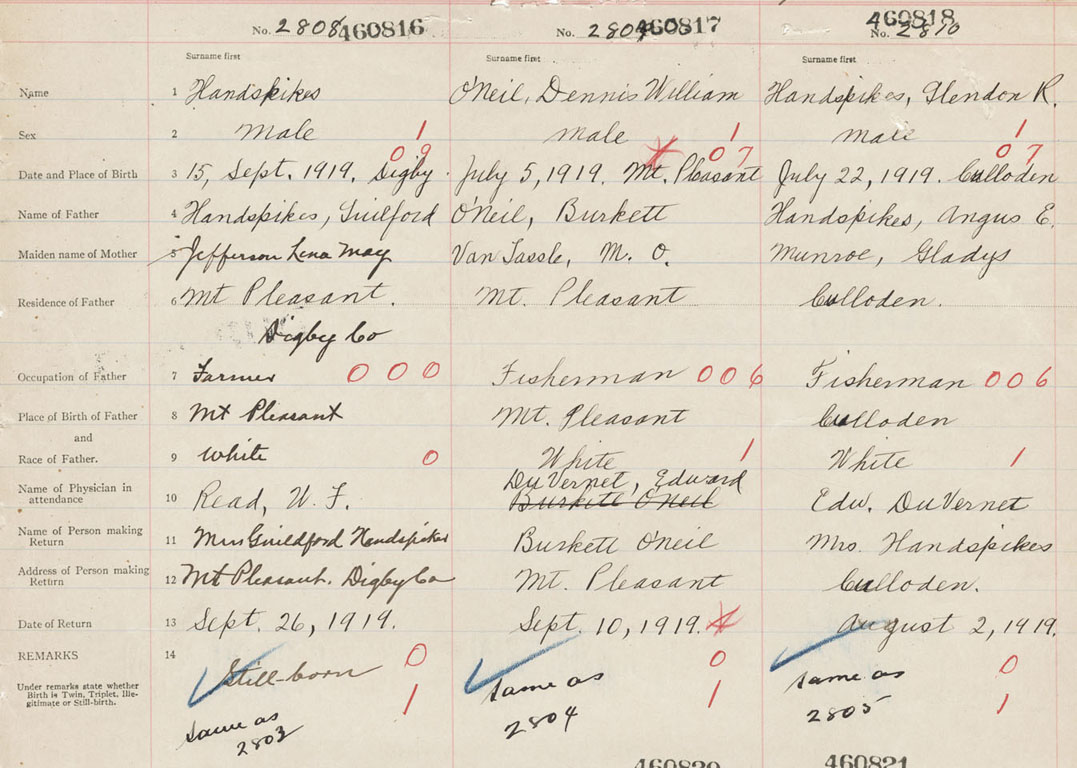 No. 2808 460816 No. 2809 460817 460818 No. 2810
Surname first Surname first Surname first
Name 1 Handspikes O'Neil, Dennis William Handspikes, Glendon R.
Sex 2 male 1 male 1 male 1
09 07 07
Date and Place of Birth 3 15, Sept. 1919. Digby. July 5, 1919. Mt. Pleasant July 22, 1919. Culloden
Name of Father 4 Handspikes, Guilford O'Neil, Burkett Handspikes, Angus E.
Maiden name of Mother 5 Jefferson Lena May Van Tassle, M. O. Munroe, Gladys
Residence of Father 6 Mt Pleasant. Mt. Pleasant Culloden.
Digby Co
Occupation of Father 7 Farmer 000 Fisherman 006 Fisherman 006
Place of Birth of Father 8 Mt Pleasant Mt. Pleasant Culloden
and
Race of Father. 9 White 0 White 1 White 1
Name of Physician in attendance 10 Read, W. F. DuVernet, Edward Edw. DuVernet
Burkett O'Neil
Name of Person making Return 11 Mrs Guildford Handspikes Burkett O'Neil Mrs. Handspikes
Address of Person making Return 12 Mt Pleasant. Digby Co Mt. Pleasant Culloden.
Date of Return 13 Sept. 26, 1919. Sept. 10, 1919. August 2, 1919.
REMARKS 14 Still-born 0 0 0
Under remarks state whether Birth is Twin, Triplet, Ille-
gitimate or Still-birth.
1 same as 1 same as 1
same as 2804 2805
2803
460820 460821